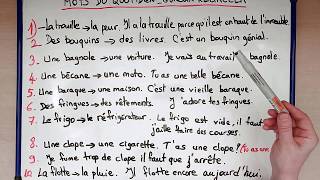 MOTS DU QUOTIDIEN
1) La trouille → la peur. Il a la trouille parce qu'il est en haut de l'immeuble.
2. Des bouquins → des livres. C'est un bouquin génial.
3. Une bagnole → une voiture. Je vais au travail bagnole.
4. Une bécane → une moto. Tu as une belle bécane.
5. Une baraque → une maison. C'est une vieille baraque.
6. Des fringues → des vêtements. J'adore tes fringues.
7. Le frigo → le réfrigérateur. Le frigo est vide, il faut
j'aille faire des courses.
8. Une clope → une cigarette. T'as une clope? (Tu as une
9. Je fume trop de clope il faut que j'arrête.
10. La flotte → la pluie. Il flotte encore aujourd'hui